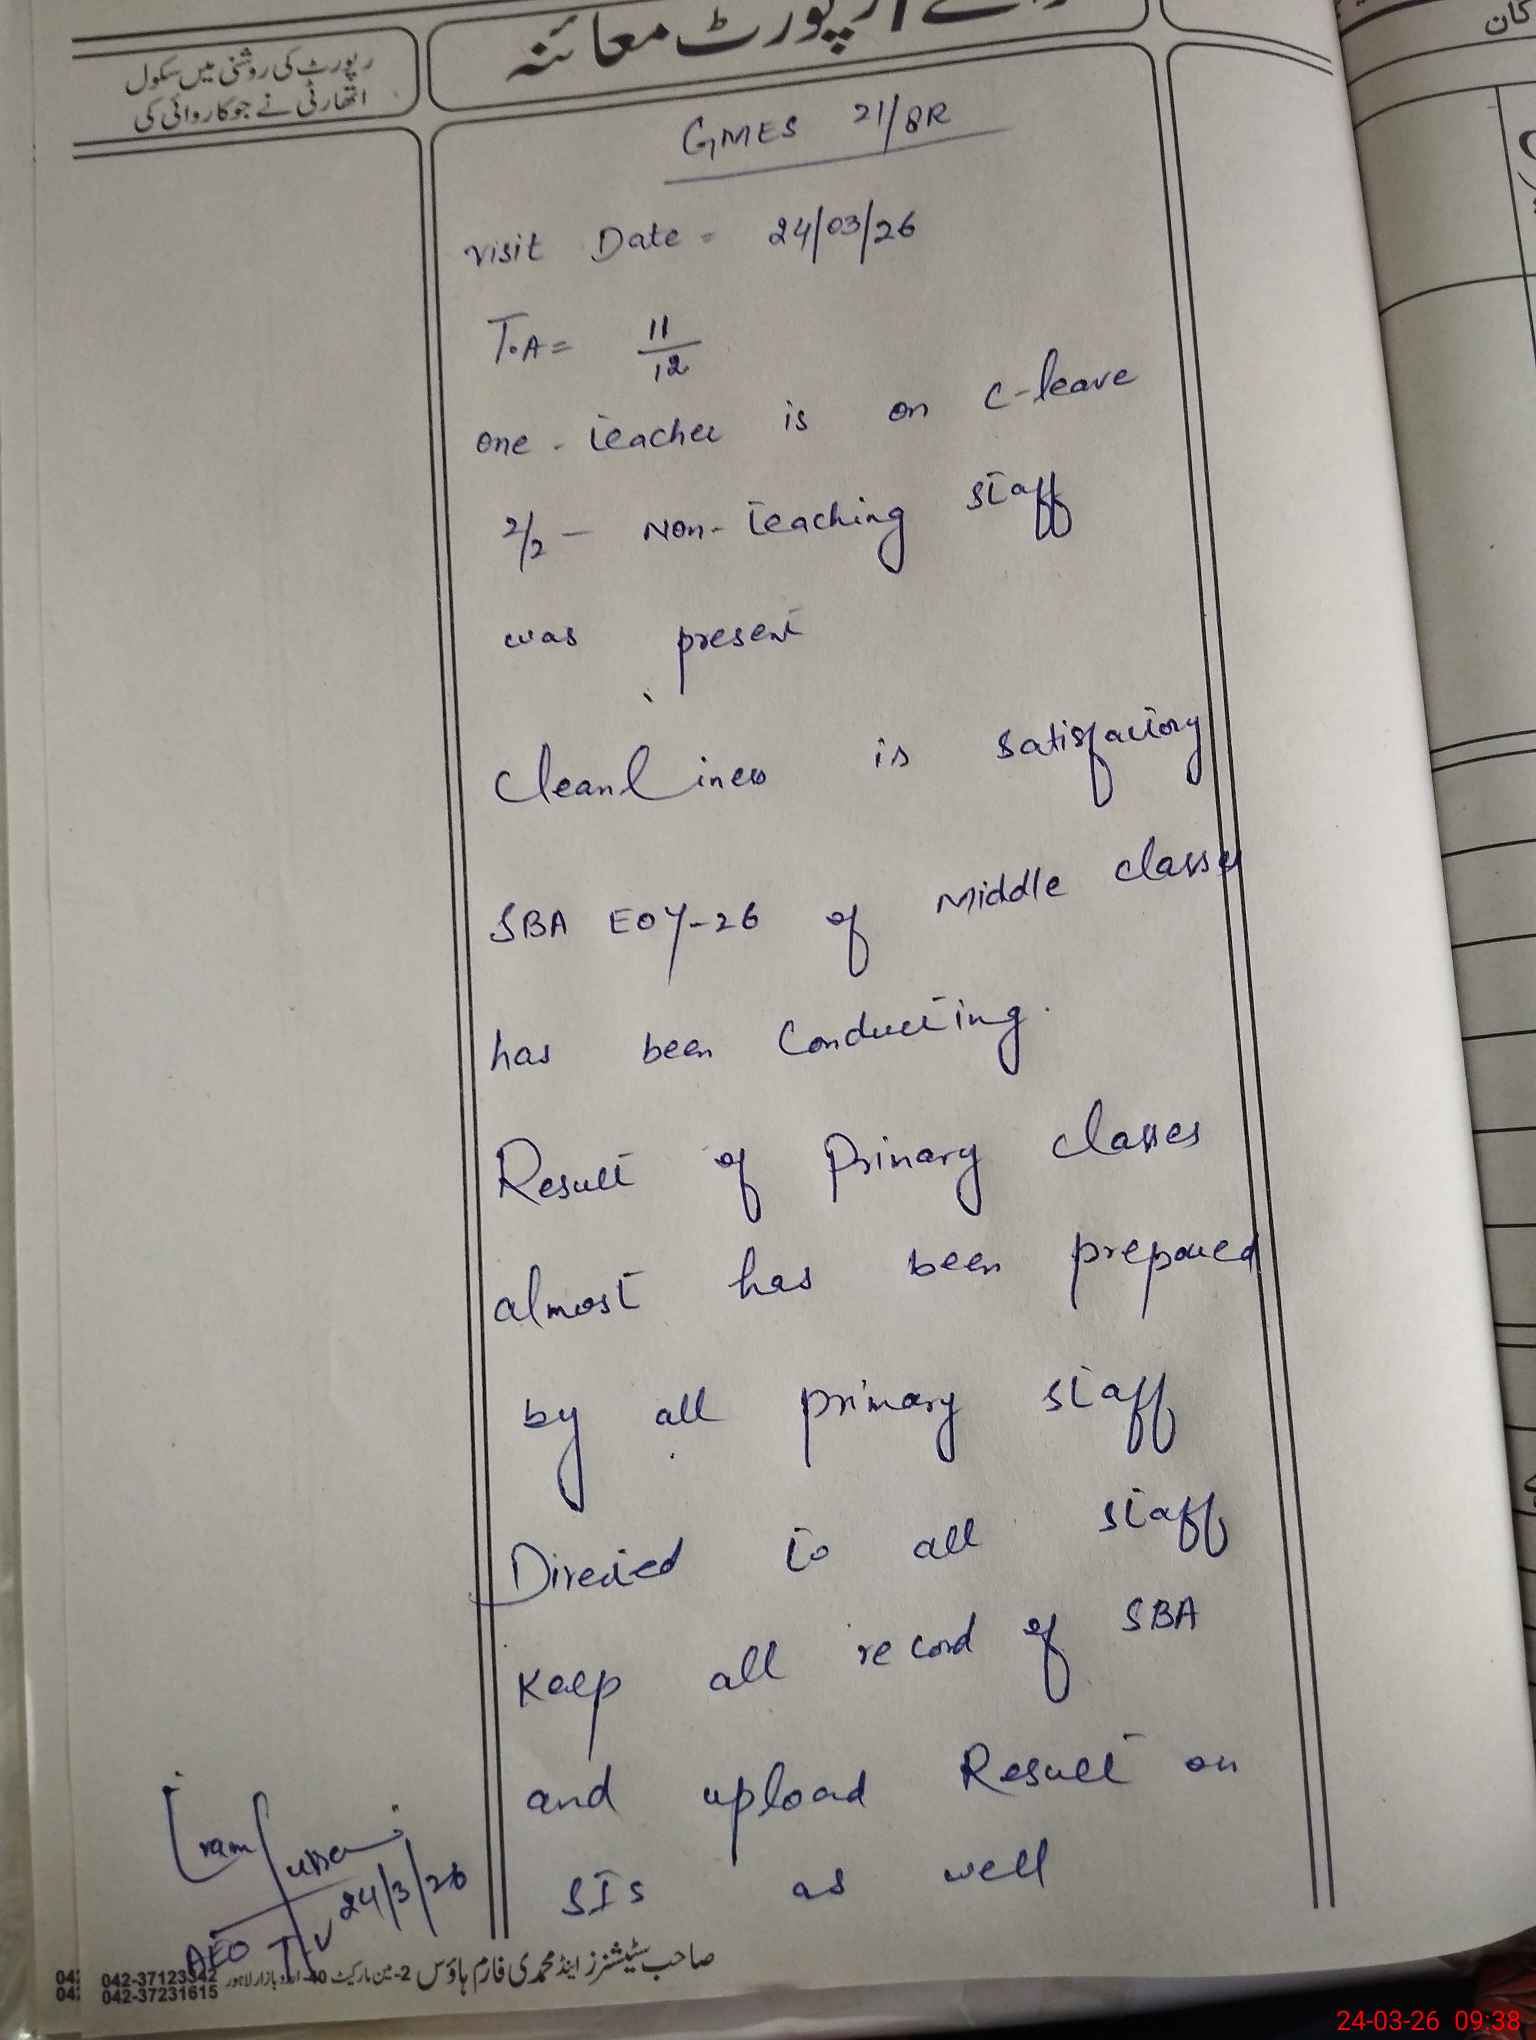 رپورٹ معائنہ
رپورٹ کی روشنی میں سکول
اتھارٹی نے جو کاروائی کی
کان
GMES 21/8R
visit Date = 24/03/26
T.A = 11/12
one - teacher is on C-leave
2/2 - Non-teaching staff
was present
Cleanliness is satisfactory
SBA EOY-26 of Middle classes
has been Conducting.
Result of Primary classes
almost has been prepared
by all primary staff
Directed to all staff
Keep all record of SBA
and upload Result on
SIS as well
24/3/26
AEO
صاحب سٹیشنرز اینڈ محمدی فارم ہاؤس 2-مین مارکیٹ 40-اردو بازار لاہور
042-37123342
042-37231615
24-03-26 09:38